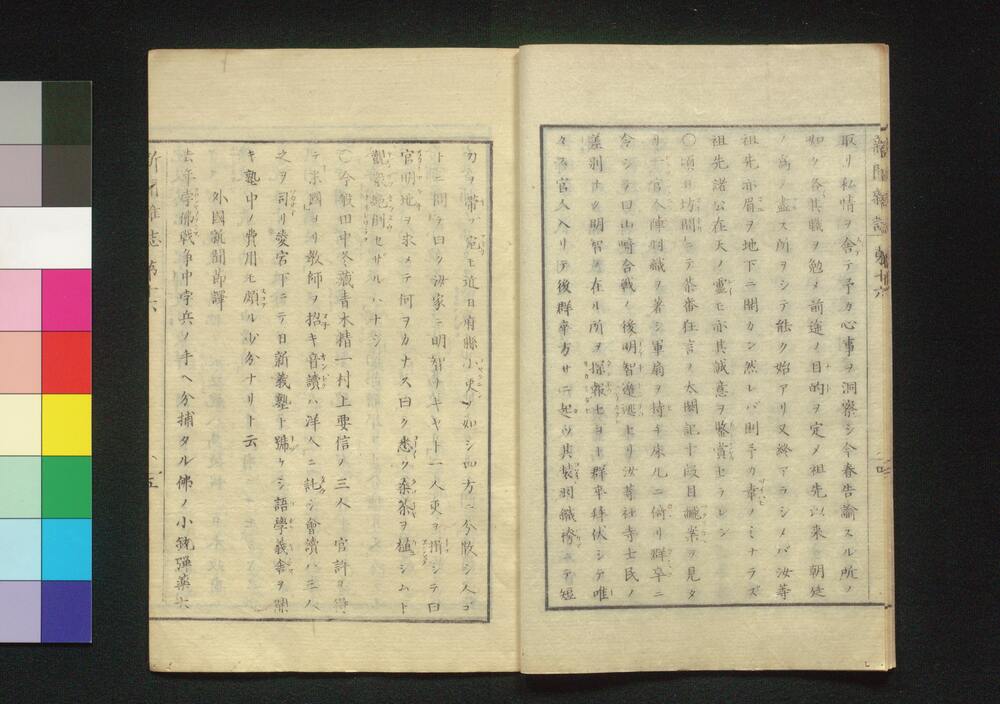 新聞雑誌 第十六
取リ私情ヲ舍テ予カ心事ヲ洞察シ今春告諭スル所ノ
如ク各其職ヲ勉メ前途ノ目的ヲ定メ祖先以来 朝廷
ノ為メ盡ス所ヲシテ能ク始アリ又終アラシメバ汝等
祖先亦眉ヲ地下ニ開カン然レバ則予カ幸ノミナラズ
祖先諸公在天ノ靈モ亦其誠意ヲ鑒賞セラレン
〇頃日坊間ニテ茶番狂言ノ太閤記十段目 案ヲ見タ
リ一官人陣羽織ヲ著シ軍扇ヲ持チ床几ニ倚リ群卒ニ
令シテ曰山崎合戦ノ後明智遁逃セリ汝等社寺士民ノ
差別ナク明智ノ在ル所ヲ探報セヨト群卒拜伏シテ唯
々ス官人入リテ後群卒方サニ起ツ其装羽織袴ニテ短
刀ヲ帯ヒ 宛モ近日府縣小吏ノ如シ四方ニ分散シ人ゴ
トニ問ヲ曰ク汝家ニ明智ナキヤト一人吏ヲ揖シテ曰
官明地ヲ求メテ何ヲカナス曰ク悉ク桑茶ヲ植シムト
觀衆絶倒セサルハナシ
〇今般田中 藏青木精一村上要信ノ三人 官許ヲ得
テ米國ヨリ教師ヲ招キ音讀ハ洋人ニ託シ會讀ハ三人
之ヲ司リ愛宕下ニテ日新義塾ト號ケシ語學義舎ヲ開
キ塾中ノ費用モ頗ル少分ナリト云
外國新聞節譯
去年孛佛戰争中孛兵ノ手ヘ分捕タル佛ノ小銃彈藥大
新聞雑誌 第十六
五